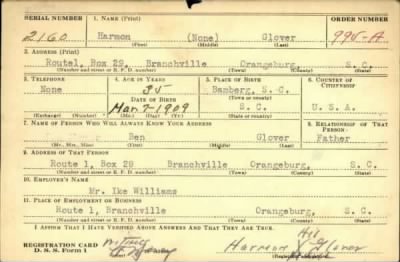 SERIAL NUMBER 1. NAME (Print) ORDER NUMBER
2160 Harmon (None) Glover 995-A
(First) (Middle) (Last)
3. ADDRESS (Print)
Route1, Box 29, Branchville Orangeburg S. C.
(Number and street or R. F. D. number) (Town) (County) (State)
3. TELEPHONE 4. AGE IN YEARS 5. PLACE OF BIRTH 6. COUNTRY OF CITIZENSHIP
None 35 Bamberg, S. C.
DATE OF BIRTH (Town or county)
Mar 7-1909 S. C. U. S. A.
(Exchange) (Number) (Mo.) (Day) (Yr.) (State or country)
7. NAME OF PERSON WHO WILL ALWAYS KNOW YOUR ADDRESS 8. RELATIONSHIP OF THAT PERSON
Ben Glover Father
(Mr., Mrs., Miss) (First) (Middle) (Last)
9. ADDRESS OF THAT PERSON
Route 1, Box 29 Branchville Orangeburg, S. C.
(Number and street or R. F. D. number) (Town) (County) (State)
10. EMPLOYER'S NAME
Mr. Ike Williams
11. PLACE OF EMPLOYMENT OR BUSINESS
Route 1, Branchville Orangeburg, S. C.
(Number and street or R. F. D. number) (Town) (County) (State)
I AFFIRM THAT I HAVE VERIFIED ABOVE ANSWERS AND THAT THEY ARE TRUE.
His
REGISTRATION CARD Harmon X Glover
D. S. S. Form 1